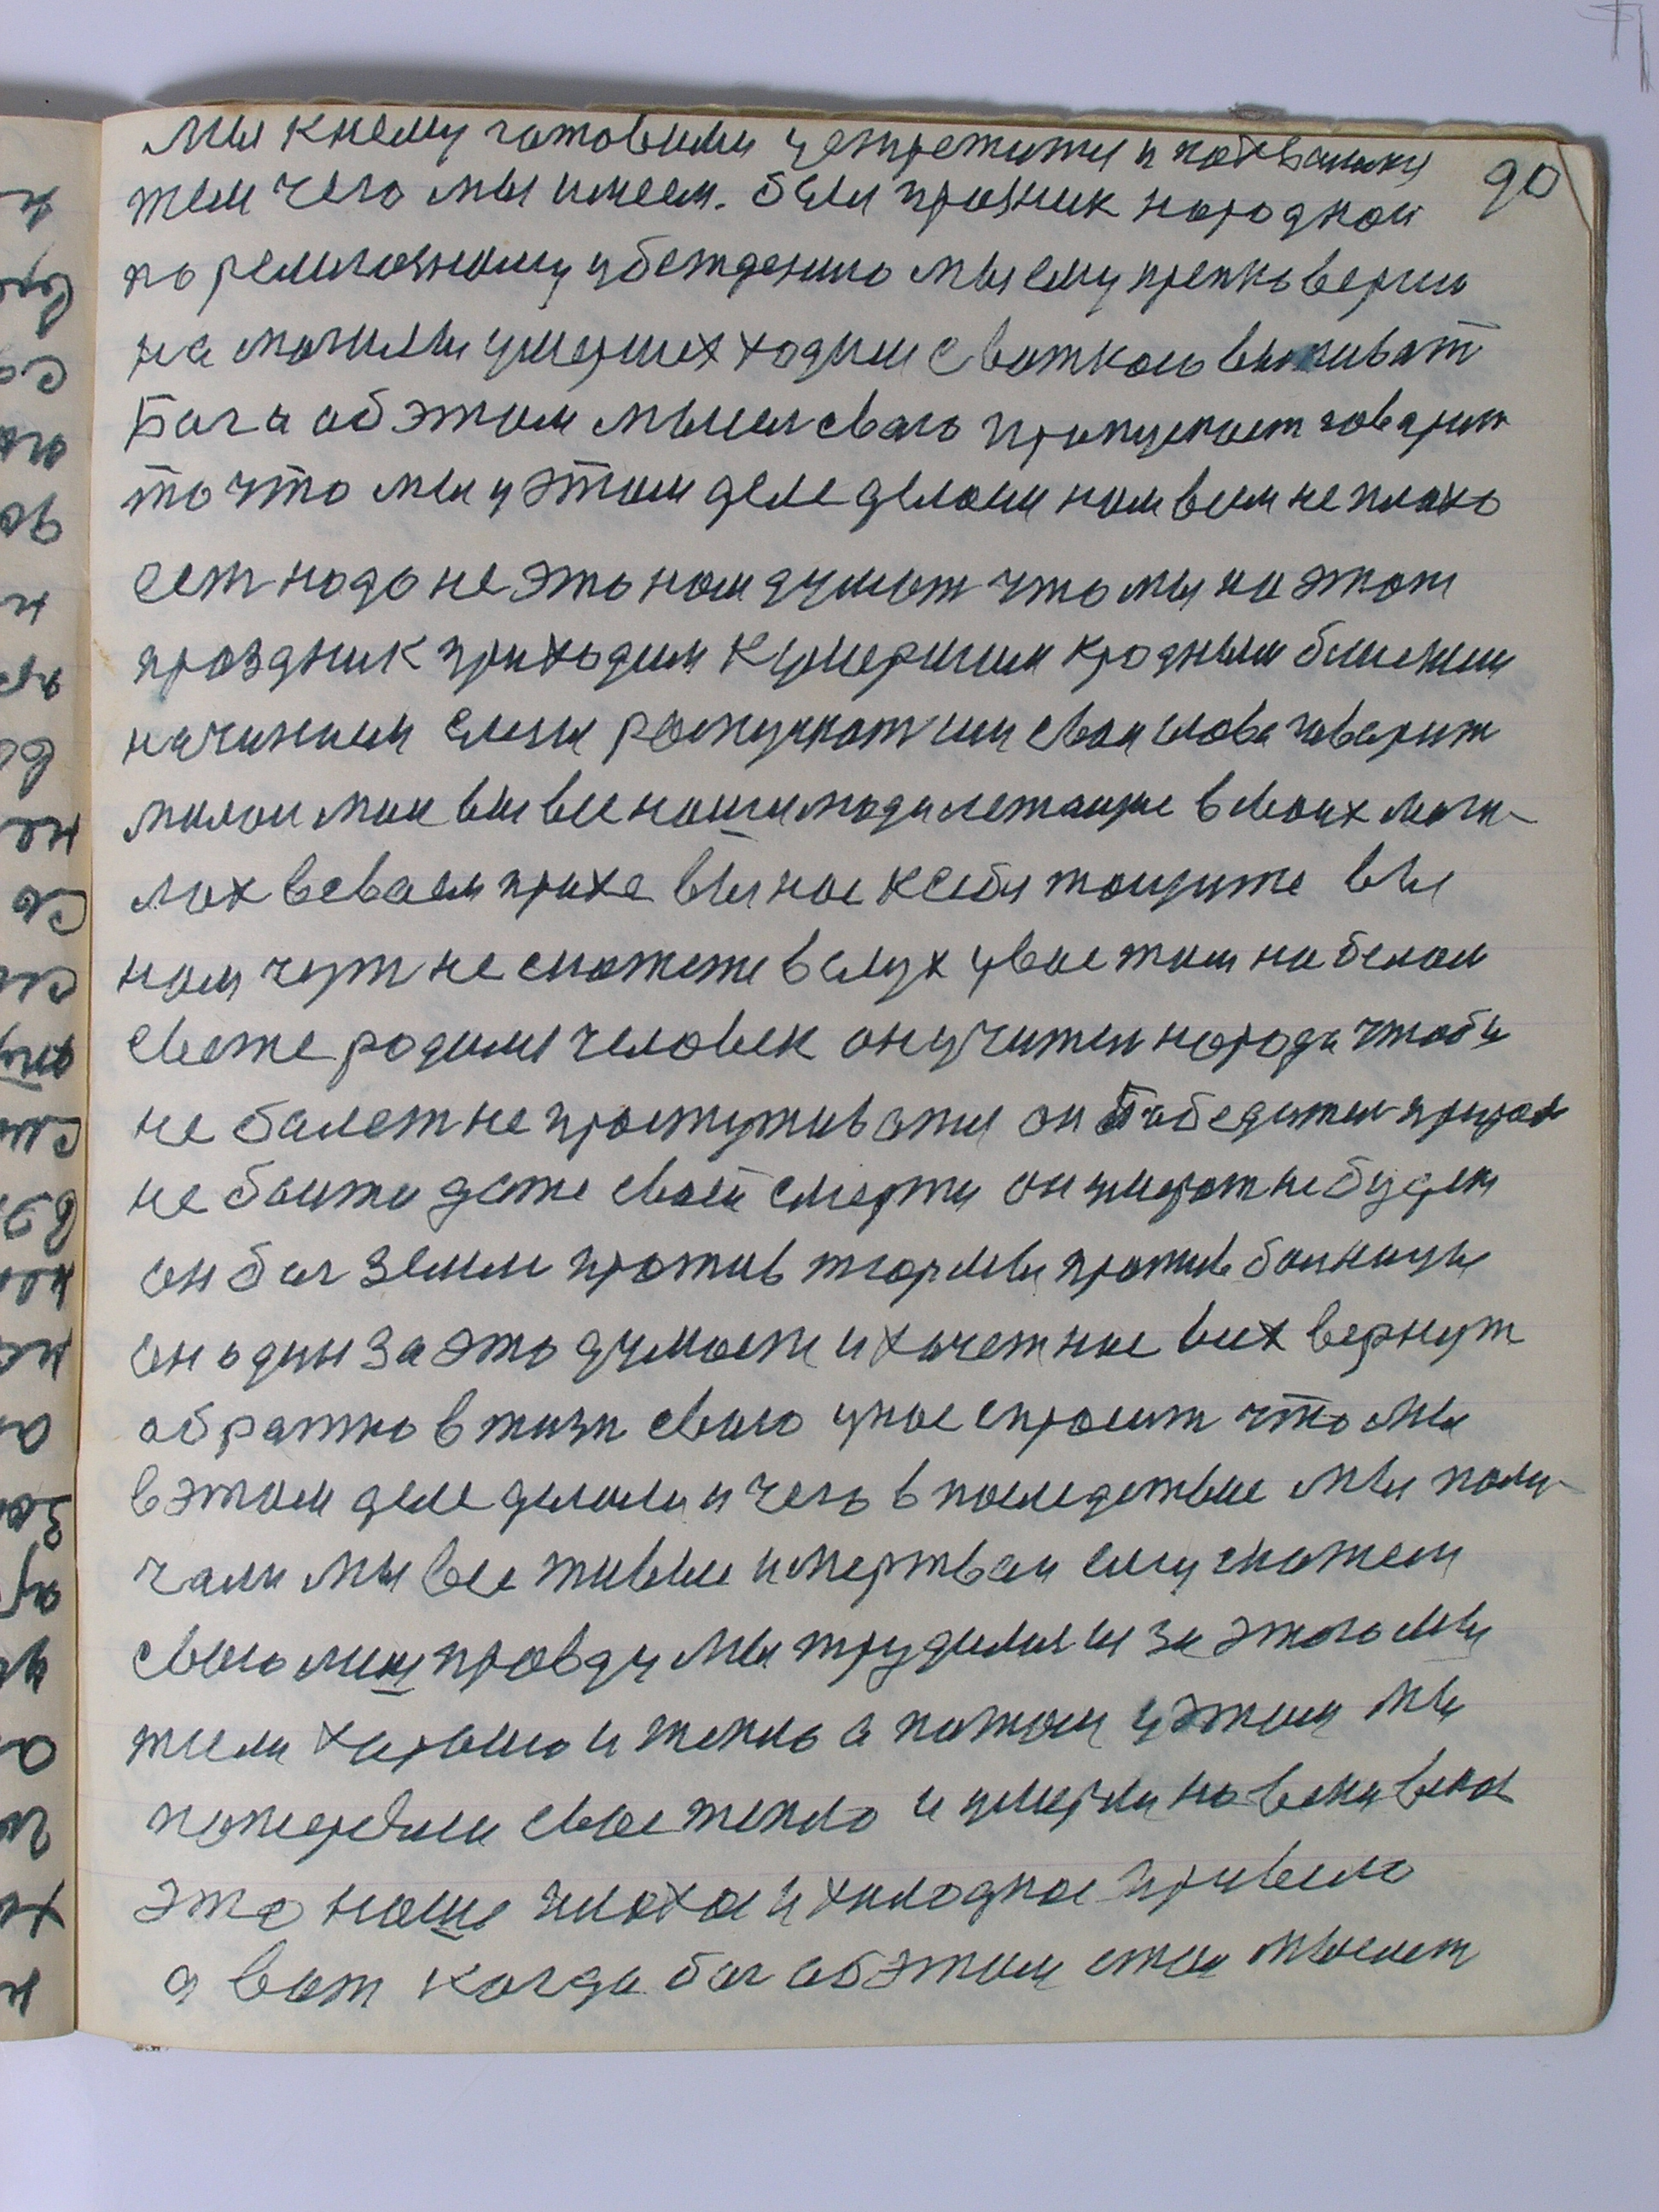 90
мы к нему готовимы устретитя и похвалитя
тем чего мы имеем. были празник народной
по религозному убеждению мы ему крепко верим
на могилы умерших ходим с воткою выпиват
Бога об этом мысел сваю пропускает говарит
то что мы у этом деле делоем нам всем не плохо
ест нодо не это нам думат что мы на этот
праздник приходим к умершим к родным ближим
начинаем слезы роспускат им свои слова говорит
милои мои вы все наши люди лежащие в своих моги-
лох в сваем прахе вы нас к себя тощите вы
нам чут не скожете вслух у вас там на белом
свете родилсы человек он учител народа чтобы
не болет не простуживатя он Победител природы
не боитя даже своей смерти он умират не будет
он бог земли против тюрмы против болницы
он один за это думоет и хочет нас всех вернут
обратно в жизн сваю у нас спросит что мы
в этом деле делоли и чего в последствие мы полу-
чали мы все живые и мертваи ему скожем
сваю лицу провду мы трудилися за этого мы
жили харашо и тепло а потом у этом мы
потеряли свае тепло и умерли на веки веков
это наше плохое и холодное привело
а вот когда бог об этом стал мыслит